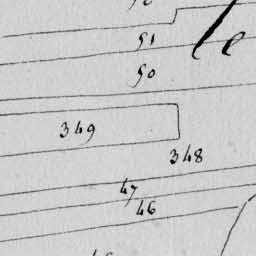 51
le
50
349
348
47
46